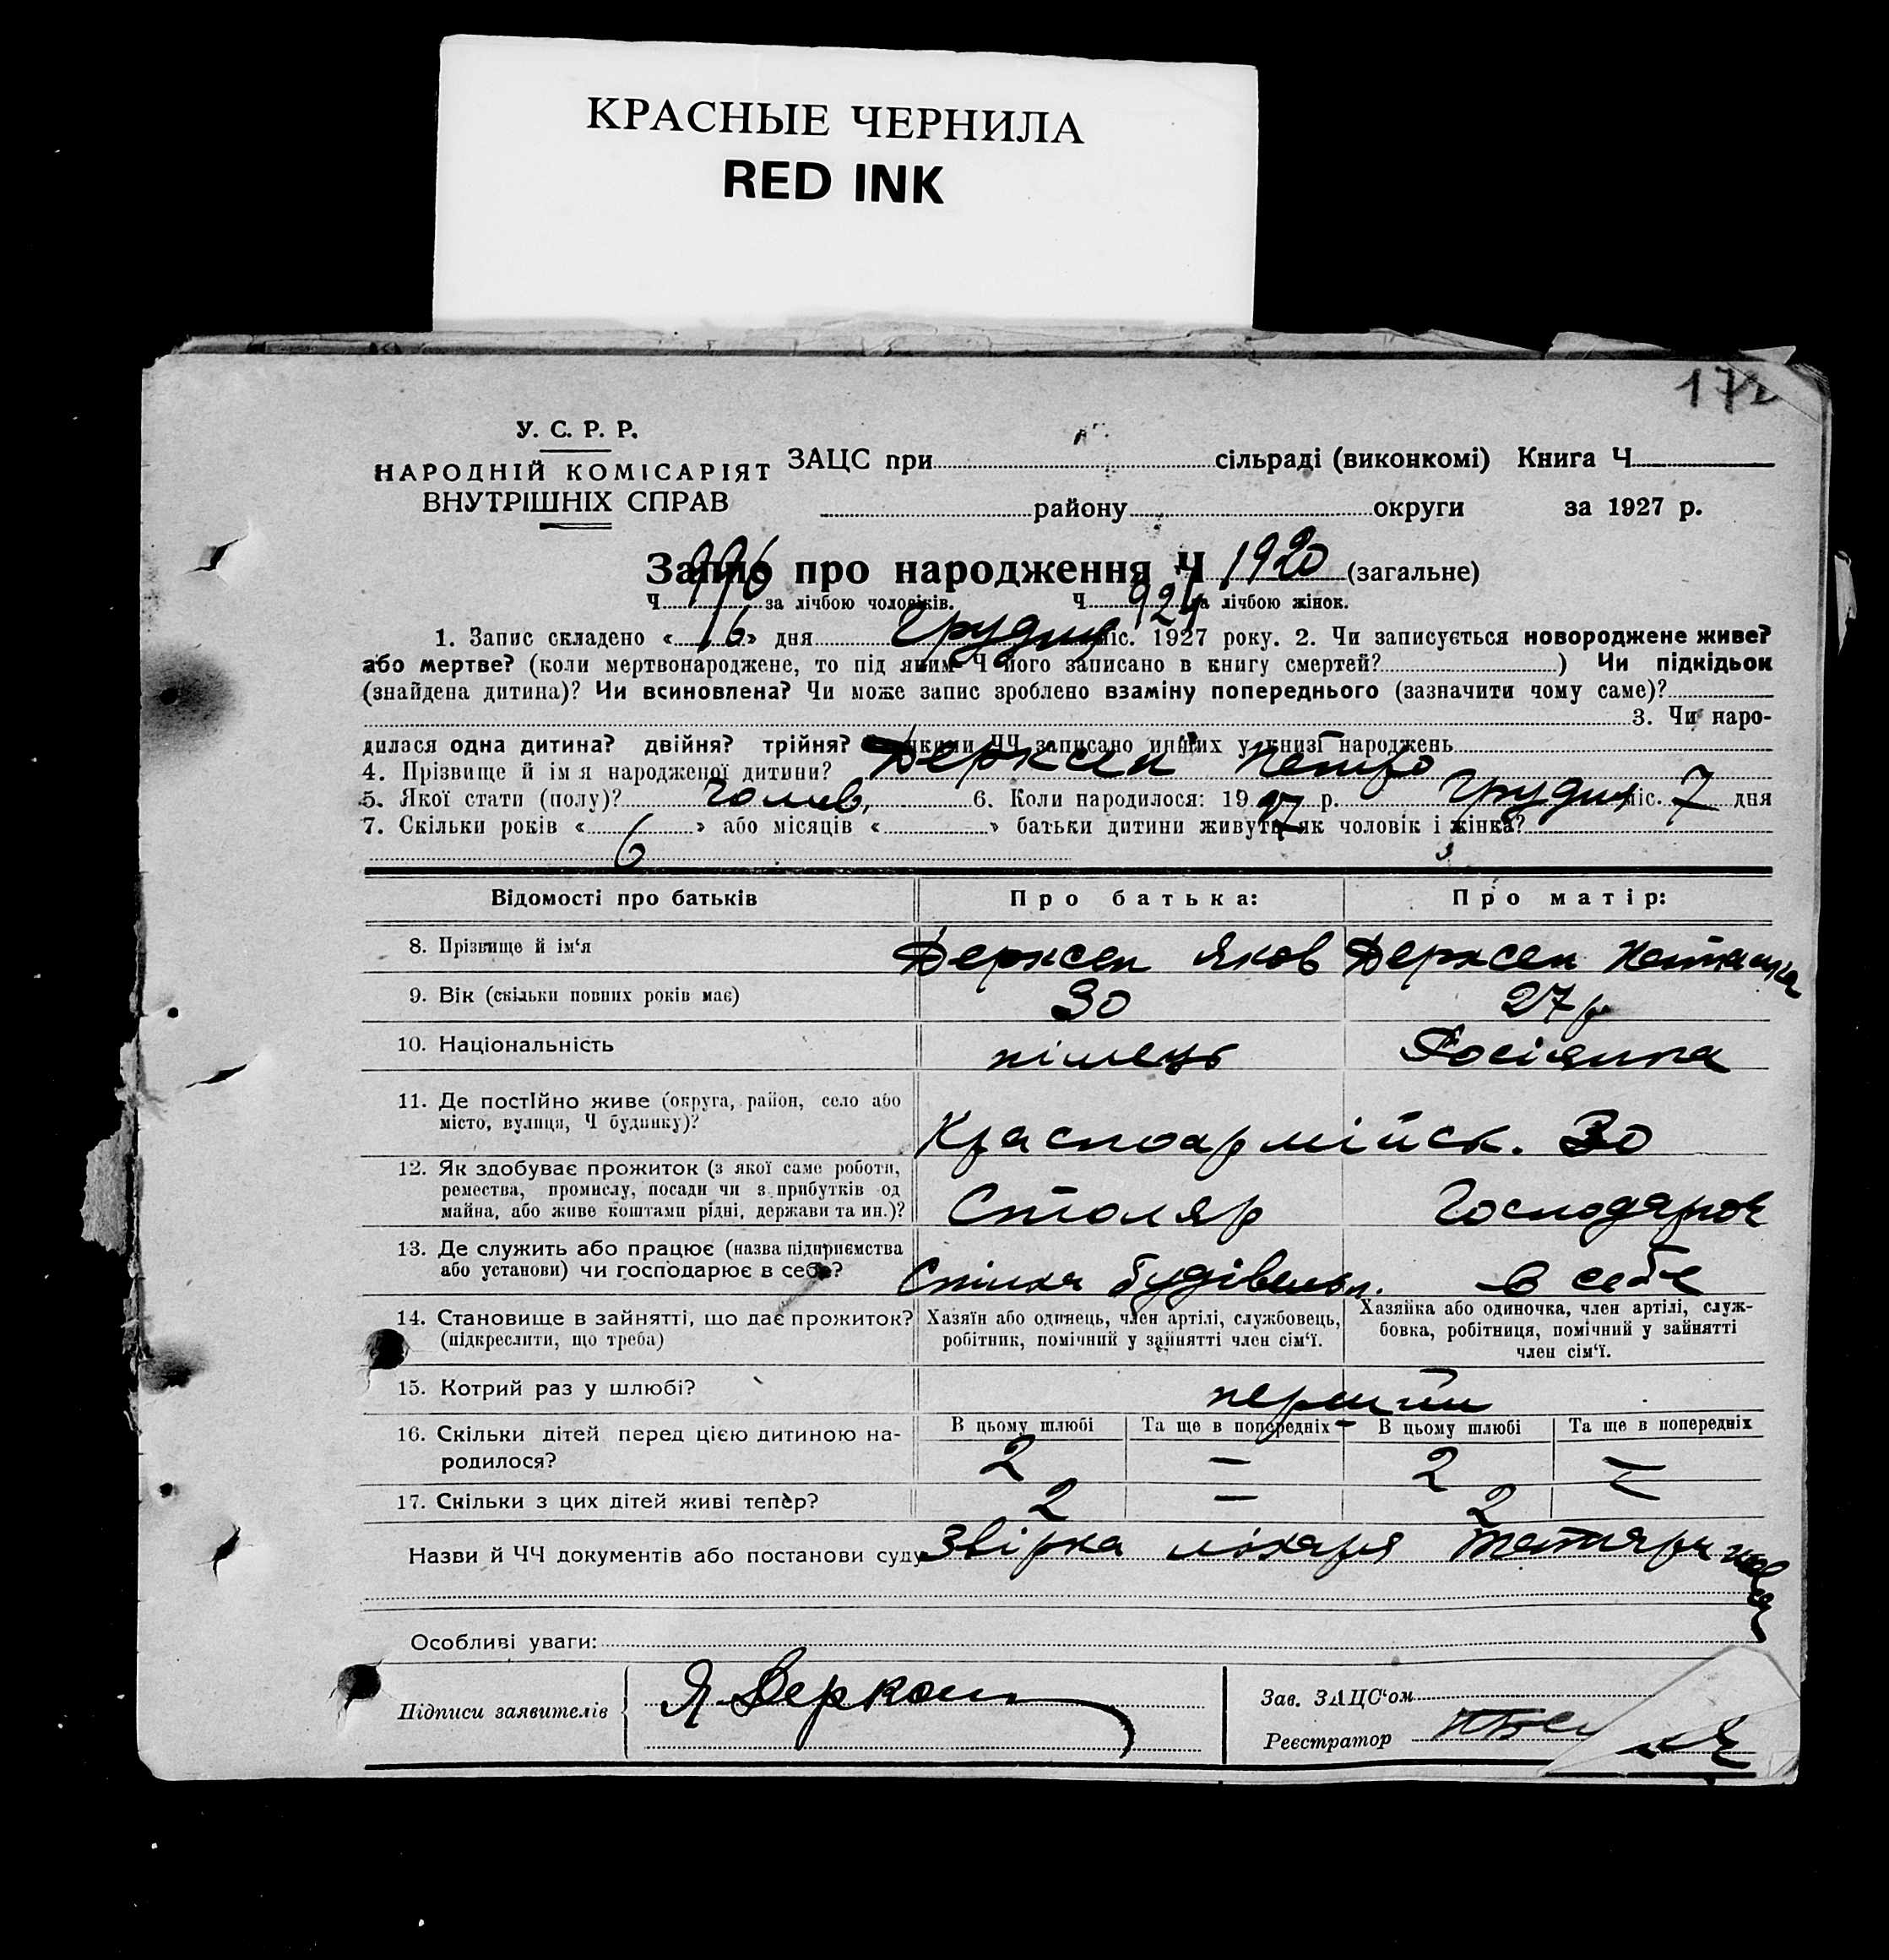 КРАСНЫЕ ЧЕРНИЛА
RED INK
172
У. С. Р. Р.
НАРОДНІЙ КОМІСАРІЯТ
ВНУТРІШНІХ СПРАВ
ЗАЦС при сільраді (виконкомі) Книга Ч.
району округи за 1927 р.
Запис про народження Ч 1920 (загальне)
Ч. 996 за лічбою чоловіків. Ч. 924 за лічбою жінок.
1. Запис складено « 16 » дня Грудня міс. 1927 року. 2. Чи записується новороджене живе?
або мертве? (коли мертвонароджене, то під яким Ч його записано в книгу смертей? ) Чи підкідьок
(знайдена дитина)? Чи всиновлена? Чи може запис зроблено взаміну попереднього (зазначити чому саме)?
3. Чи наро-
дилася одна дитина? двійня? трійня? якими ЧЧ записано инших у книзі народжень
4. Прізвище й імя народженої дитини? Дерксен Петро
5. Якої стати (полу)? чолов, 6. Коли народилося: 1927 р. Грудня міс. 7 дня
7. Скільки років « 6 » або місяців « » батьки дитини живуть як чоловік і жінка?
Відомості про батьків Про батька: Про матір:
8. Прізвище й ім'я Дерксен Яков Дерксен
9. Вік (скільки повних років має) 30 27 р
10. Національність німець Росіянка
11. Де постійно живе (округа, район, село або
місто, вулиця, Ч будинку)? Красноармійськ. 30
12. Як здобуває прожиток (з якої саме роботи,
ремества, промислу, посади чи з прибутків од
майна, або живе коштами рідні, держави та ин.)? Столяр Господарює
13. Де служить або працює (назва підприємства
або установи) чи господарює в себе? Спілка будівельн. в себе
14. Становище в зайнятті, що дає прожиток?
(підкреслити, що треба)
Хазяїн або одинець, член артілі, службовець,
робітник, помічний у зайнятті член сім'ї.
Хазяйка або одиночка, член артілі, служ-
бовка, робітниця, помічний у зайнятті
член сім'ї.
15. Котрий раз у шлюбі? перший
В цьому шлюбі Та ще в попередніх В цьому шлюбі Та ще в попередніх
16. Скільки дітей перед цією дитиною на-
родилося? 2 — 2 —
17. Скільки з цих дітей живі тепер? 2 — 2 —
Назви й ЧЧ документів або постанови суду Звірка лікаря
Особливі уваги:
Підписи заявителів Я Дерксен
Зав. ЗАЦС'ом
Реєстратор